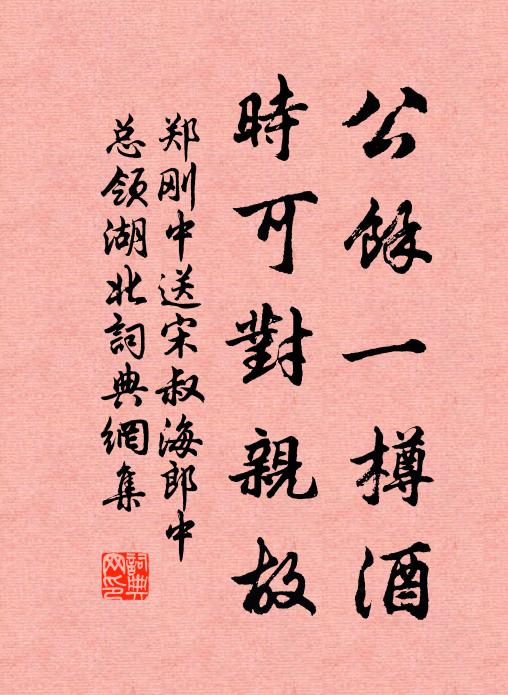 公餘一樽酒
時可對親故
郑刚中送宋叔海郎中
总领湖北詞典網集
詞典网印